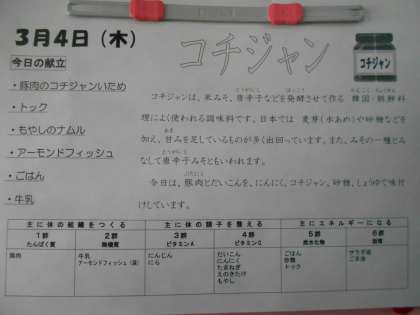 3月4日（木）
コチジャン
コチジャン
今日の献立
・豚肉のコチジャンいため
・トック
・もやしのナムル
・アーモンドフィッシュ
・ごはん
・牛乳
コチジャンは、米みそ、唐辛子などを発酵させて作る 韓国・朝鮮料
理によく使われる調味料です。日本では 麦芽（水あめ）や砂糖などを
加え、甘みを足しているものが多く出回っています。また、みその一種とみ
なして唐辛子みそともいわれます。
今日は、豚肉とだいこんを、にんにく、コチジャン、砂糖、しょうゆで味付
けしています。
主に体の組織をつくる 主に体の調子を整える 主にエネルギーになる
1群 2群 3群 4群 5群 6群
たんぱく質 無機質 ビタミンA ビタミンC 炭水化物 脂質
豚肉 牛乳 にんじん だいこん ごはん サラダ油
アーモンドフィッシュ（袋） にら にんにく 砂糖 ごま油
たまねぎ トック
えのきたけ
もやし